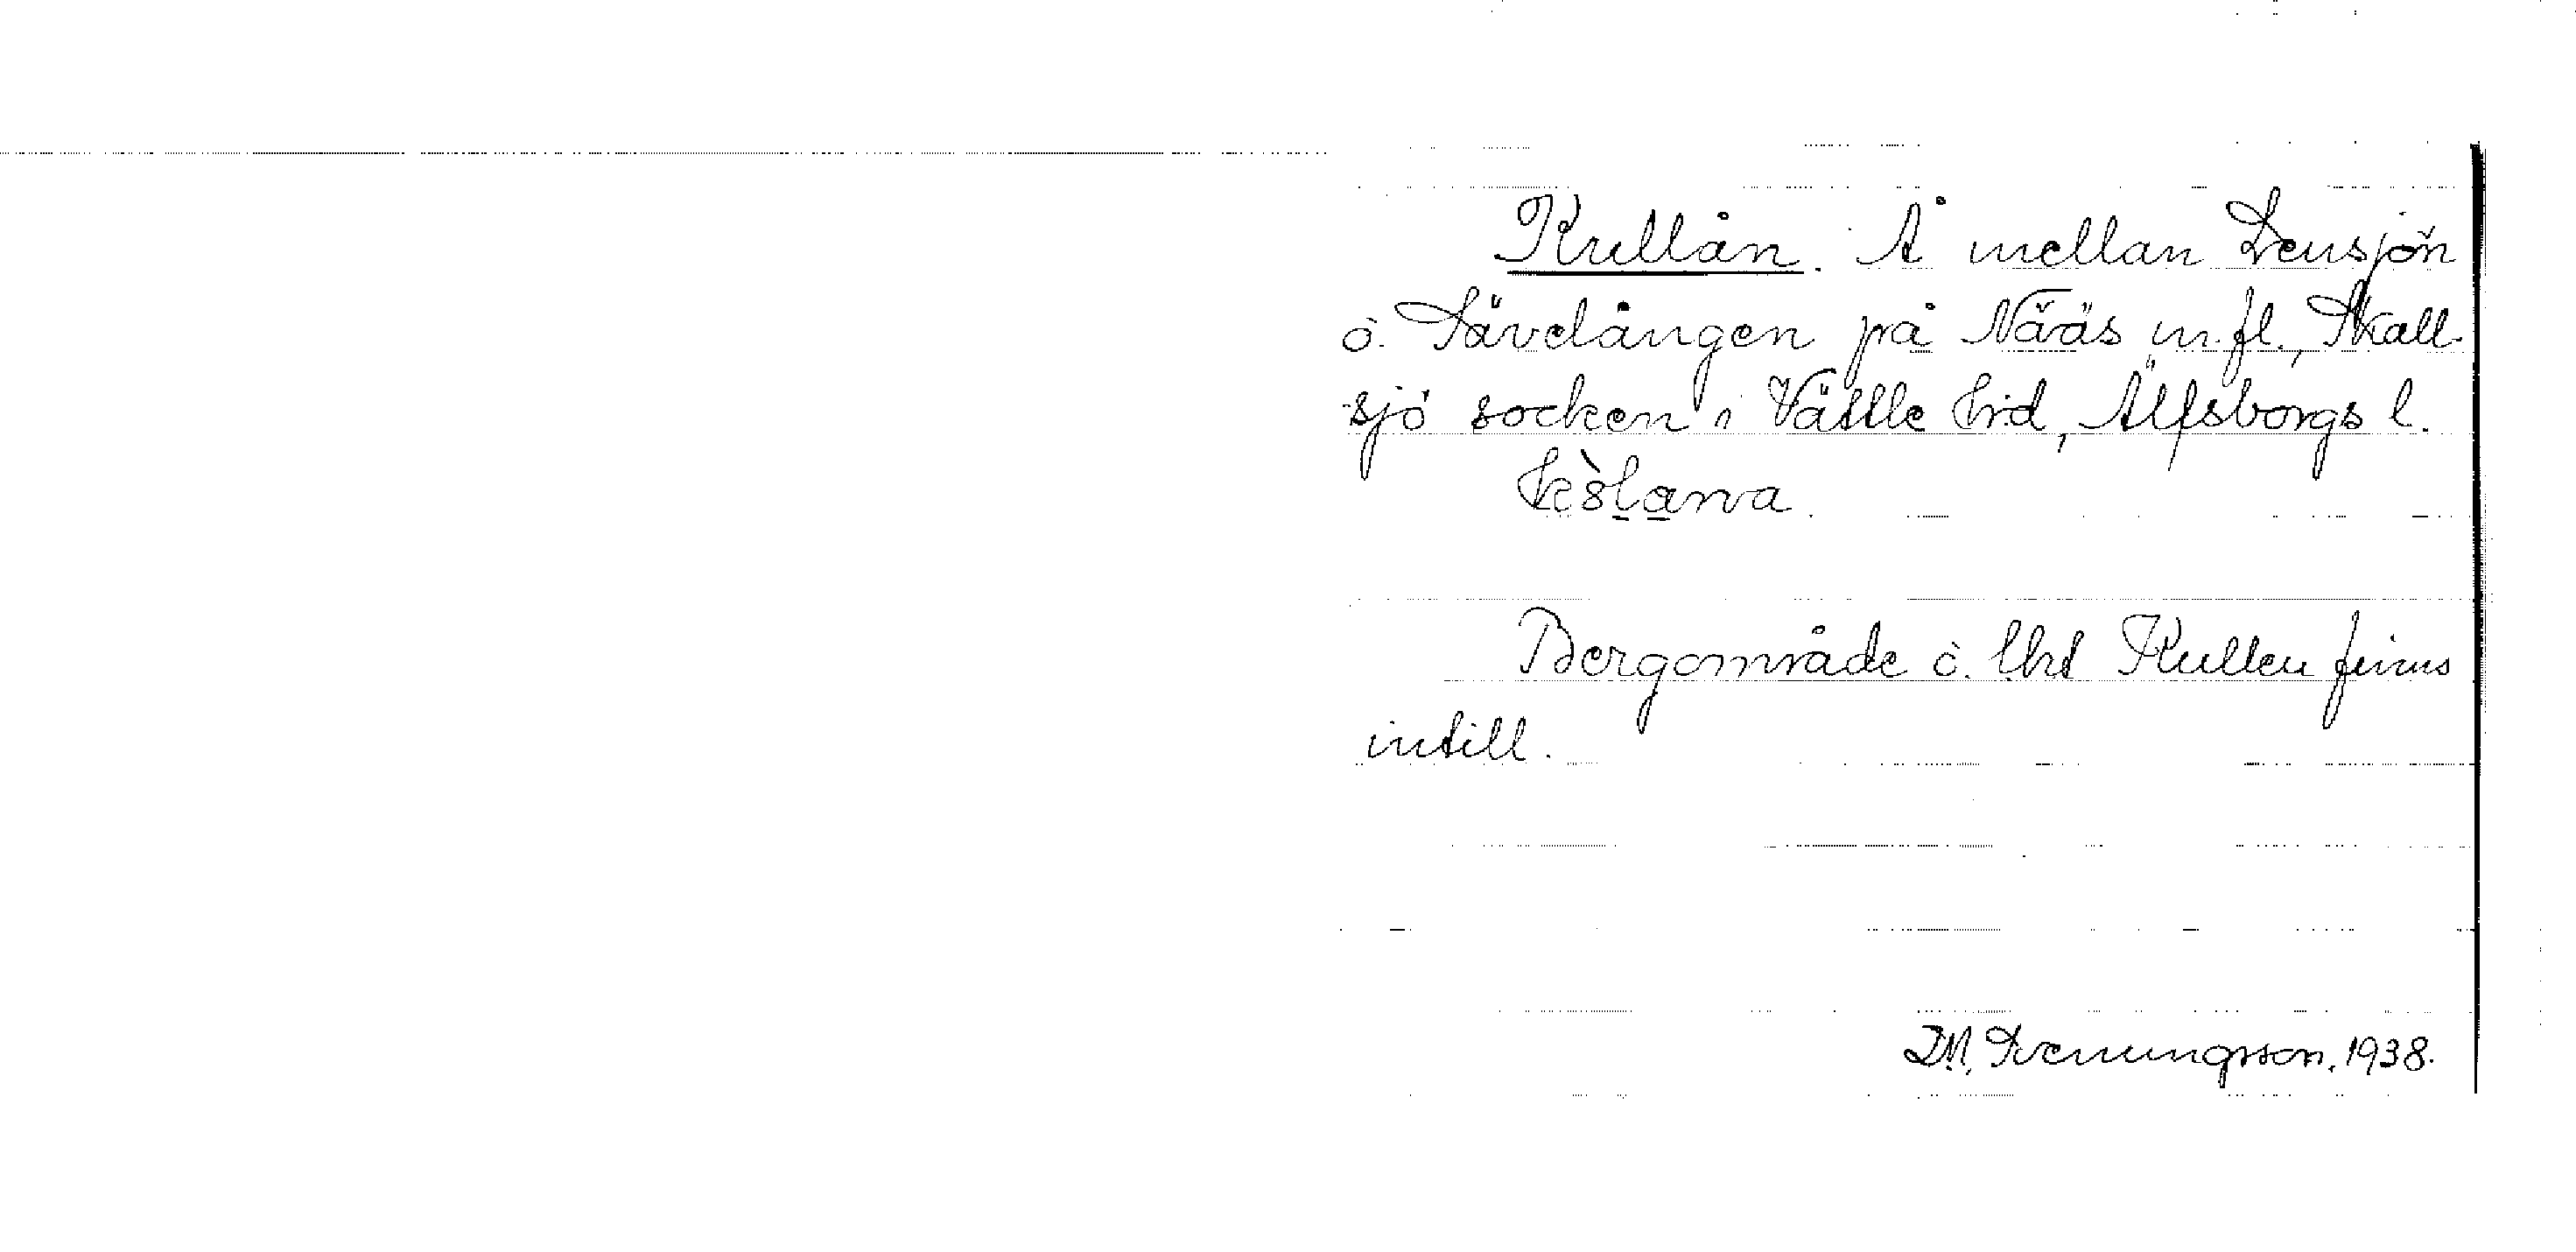 Kullån. Å mellan Sensjön
o. Sävelången på Nääs m.fl., Skall-
sjö socken i Vättle hrd, Älfsborgs l.
Bergområde o. lht Kullen finns
intill.
D.M. Svenningsson. 1938.